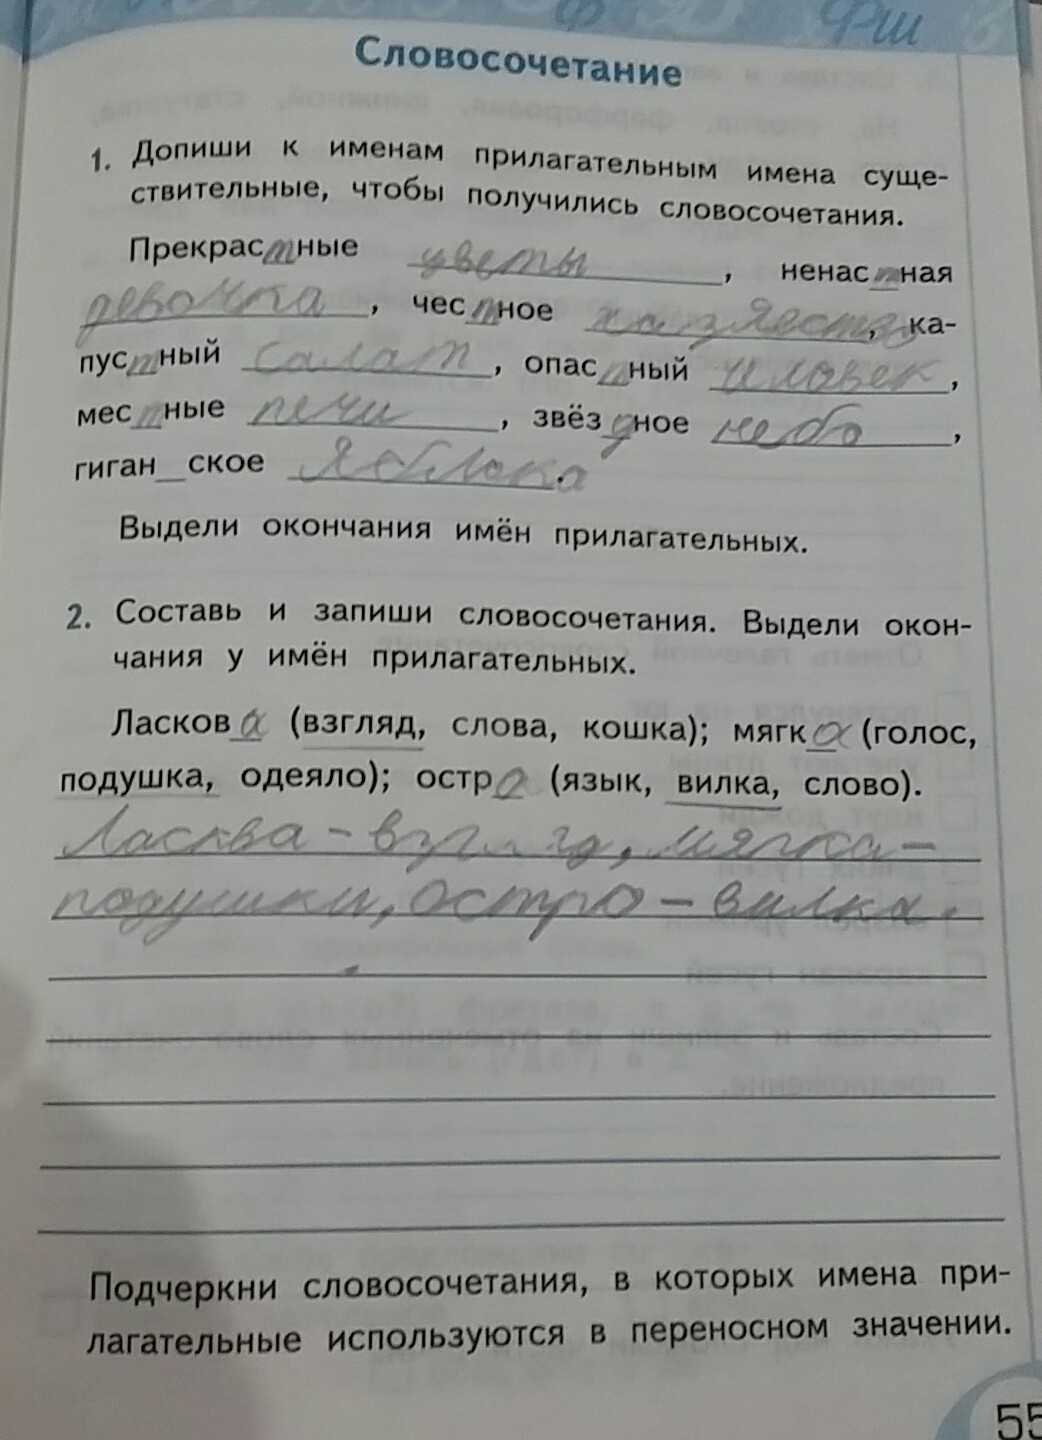 Фш
Словосочетание
1. Допиши к именам прилагательным имена суще-
ствительные, чтобы получились словосочетания.
Прекрастные цветы, ненастная
девочка, честное хазяество, ка-
пустный салат, опастный человек,
местные печи, звёздное небо,
гиган_ское Яблока.
Выдели окончания имён прилагательных.
2. Составь и запиши словосочетания. Выдели окон-
чания у имён прилагательных.
Ласкова (взгляд, слова, кошка); мягка (голос,
подушка, одеяло); остра (язык, вилка, слово).
Ласква - взгляд, мягка -
подушки, остро - вилка.
Подчеркни словосочетания, в которых имена при-
лагательные используются в переносном значении.
55